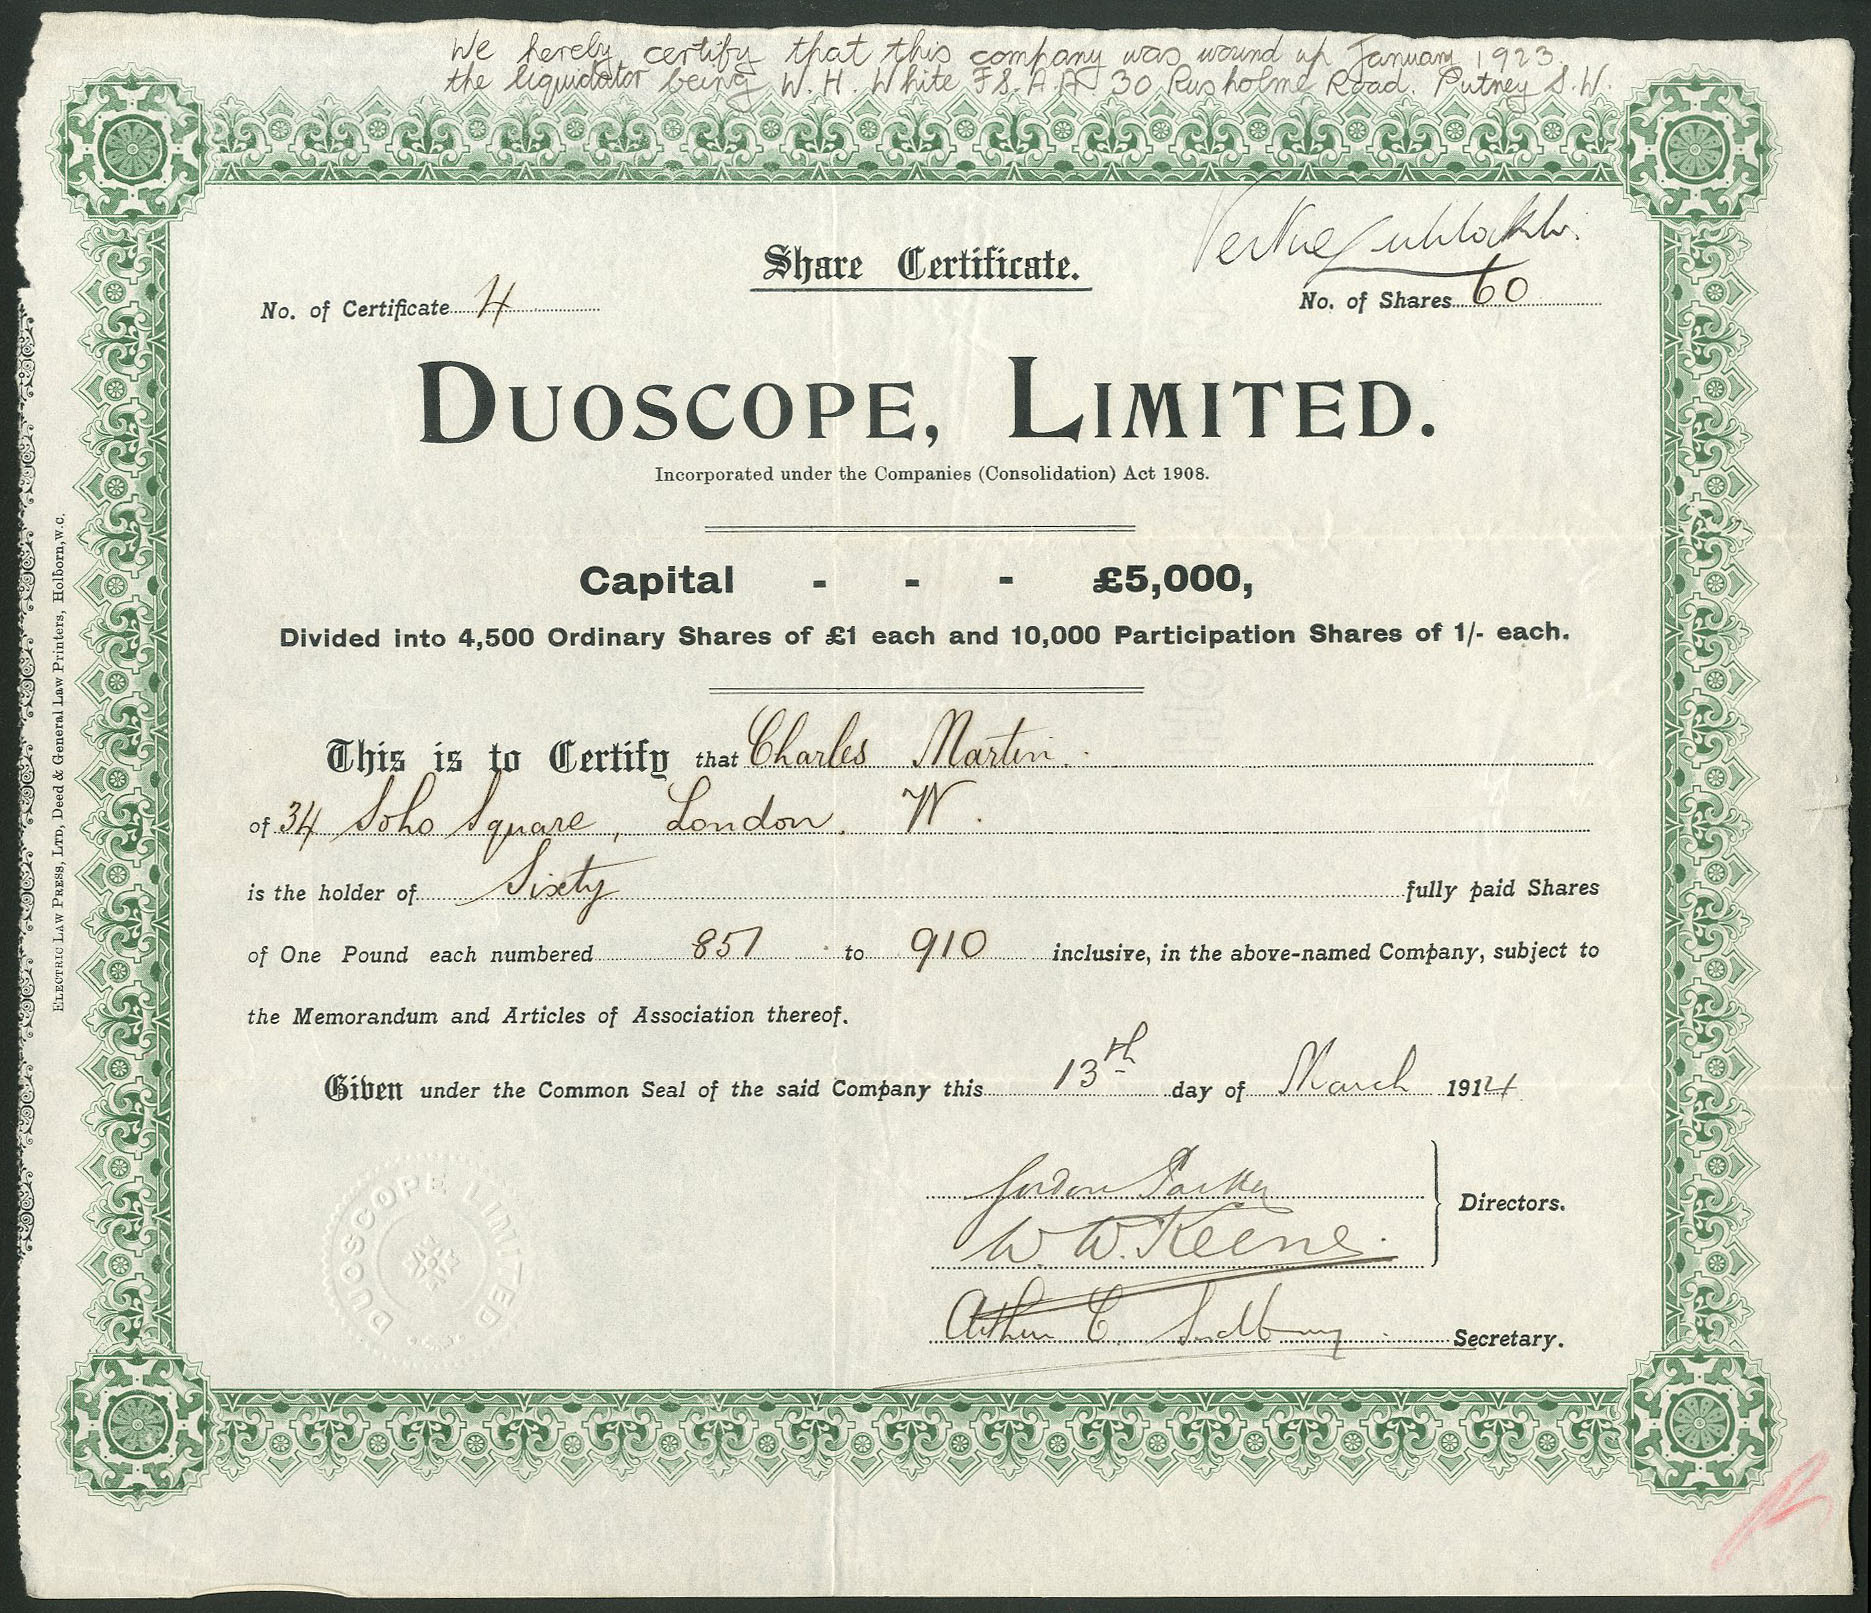 We hereby certify that this company was wound up January 1923.
the liquidator being W. H. White F.S.A.A 30 Rusholme Road. Putney S.W.
Share Certificate.
No. of Certificate 4
No. of Shares 60
DUOSCOPE, LIMITED.
Incorporated under the Companies (Consolidation) Act 1908.
Capital - - - £5,000,
Divided into 4,500 Ordinary Shares of £1 each and 10,000 Participation Shares of 1/- each.
This is to Certify that Charles Martin.
of 34 Soho Square, London. W.
is the holder of Sixty fully paid Shares
of One Pound each numbered 851 to 910 inclusive, in the above-named Company, subject to
the Memorandum and Articles of Association thereof.
Given under the Common Seal of the said Company this 13th day of March 1914
Gordon Parker
W. W. Keene.
Directors.
Arthur C. Sudbury. Secretary.
DUOSCOPE LIMITED
ELECTRIC LAW PRESS, LTD, Deed & General Law Printers, Holborn, W.C.